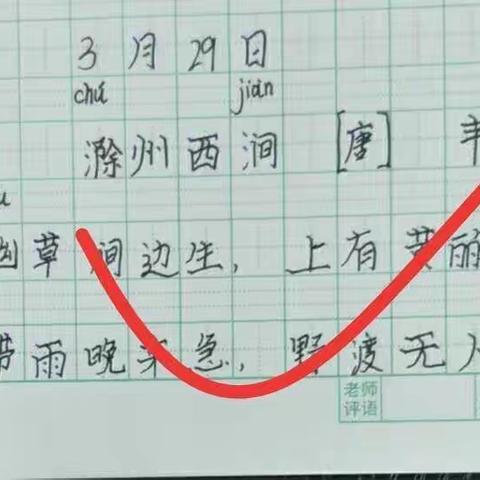 3月29日
chú jiàn
滁州西涧 [唐] 韦
幽草涧边生，上有黄丽
带雨晚来急，野渡无人
老师
评语